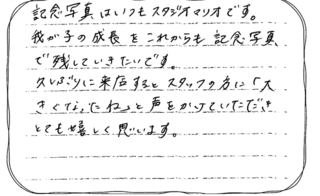 記念写真はいつもスタジオマリオです。
我が子の成長をこれからも記念写真
で残していきたいです。
久しぶりに来店するとスタッフの方に「大
きくなったね」と声をかけていただき
とても嬉しく思います。